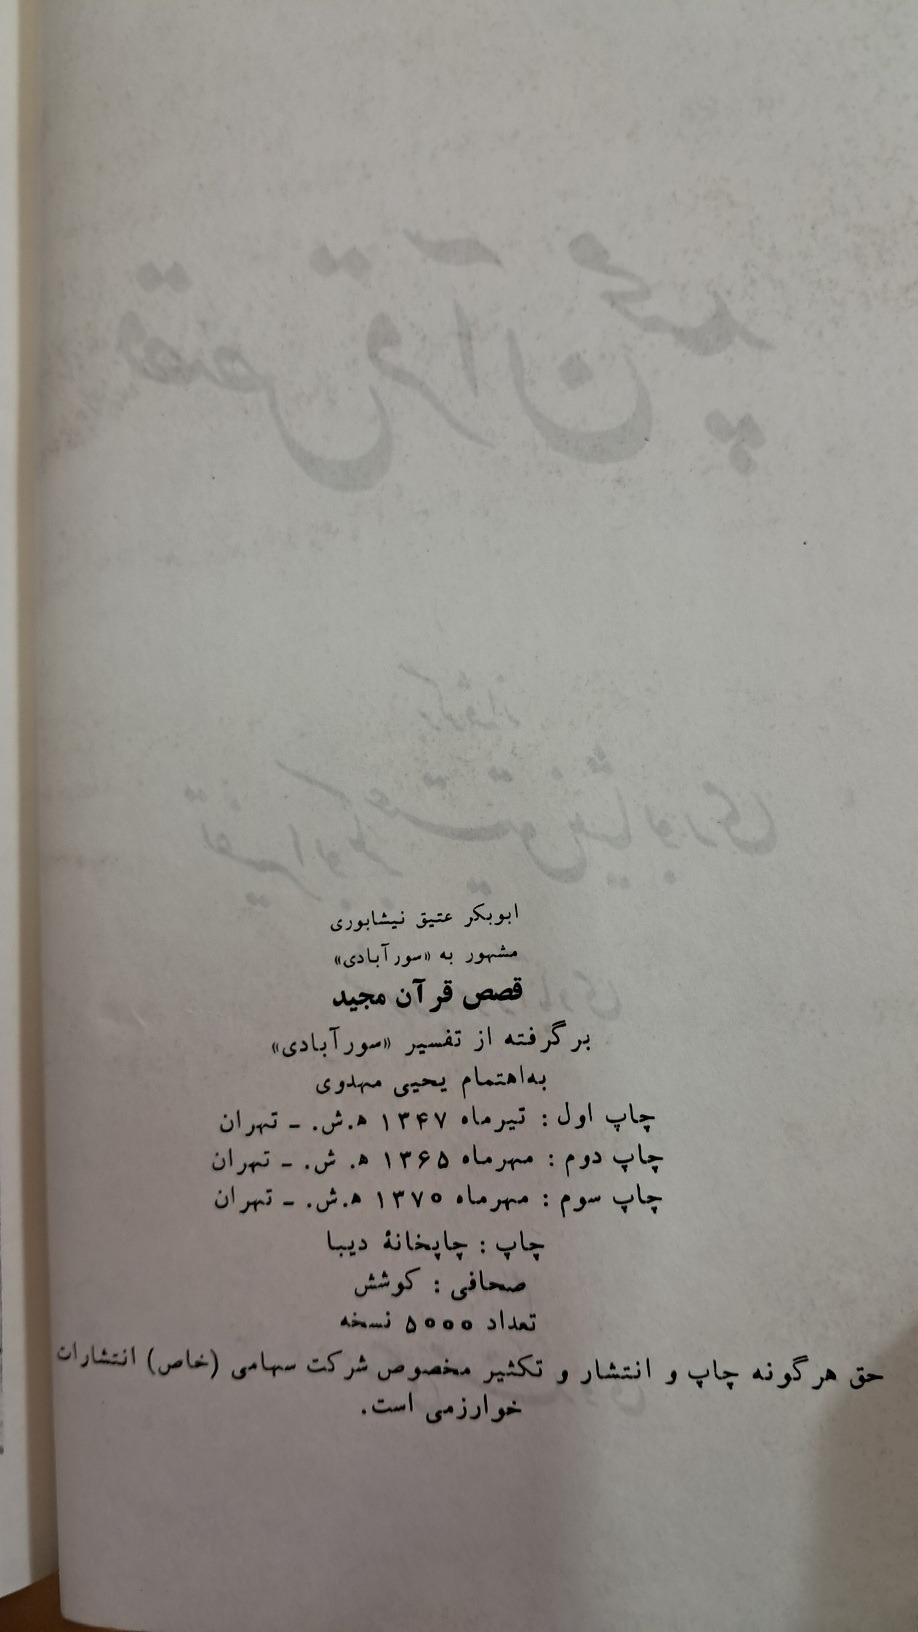 ابوبکر عتیق نیشابوری
مشهور به «سورآبادی»
قصص قرآن مجید
برگرفته از تفسیر «سورآبادی»
به‌اهتمام یحیی مهدوی
چاپ اول : تیرماه ۱۳۴۷ ه.ش. ـ تهران
چاپ دوم : مهرماه ۱۳۶۵ ه. ش. ـ تهران
چاپ سوم : مهرماه ۱۳۷۰ ه.ش. ـ تهران
چاپ : چاپخانهٔ دیبا
صحافی : کوشش
تعداد ۵۰۰۰ نسخه
حق هرگونه چاپ و انتشار و تکثیر مخصوص شرکت سهامی (خاص) انتشارات
خوارزمی است.